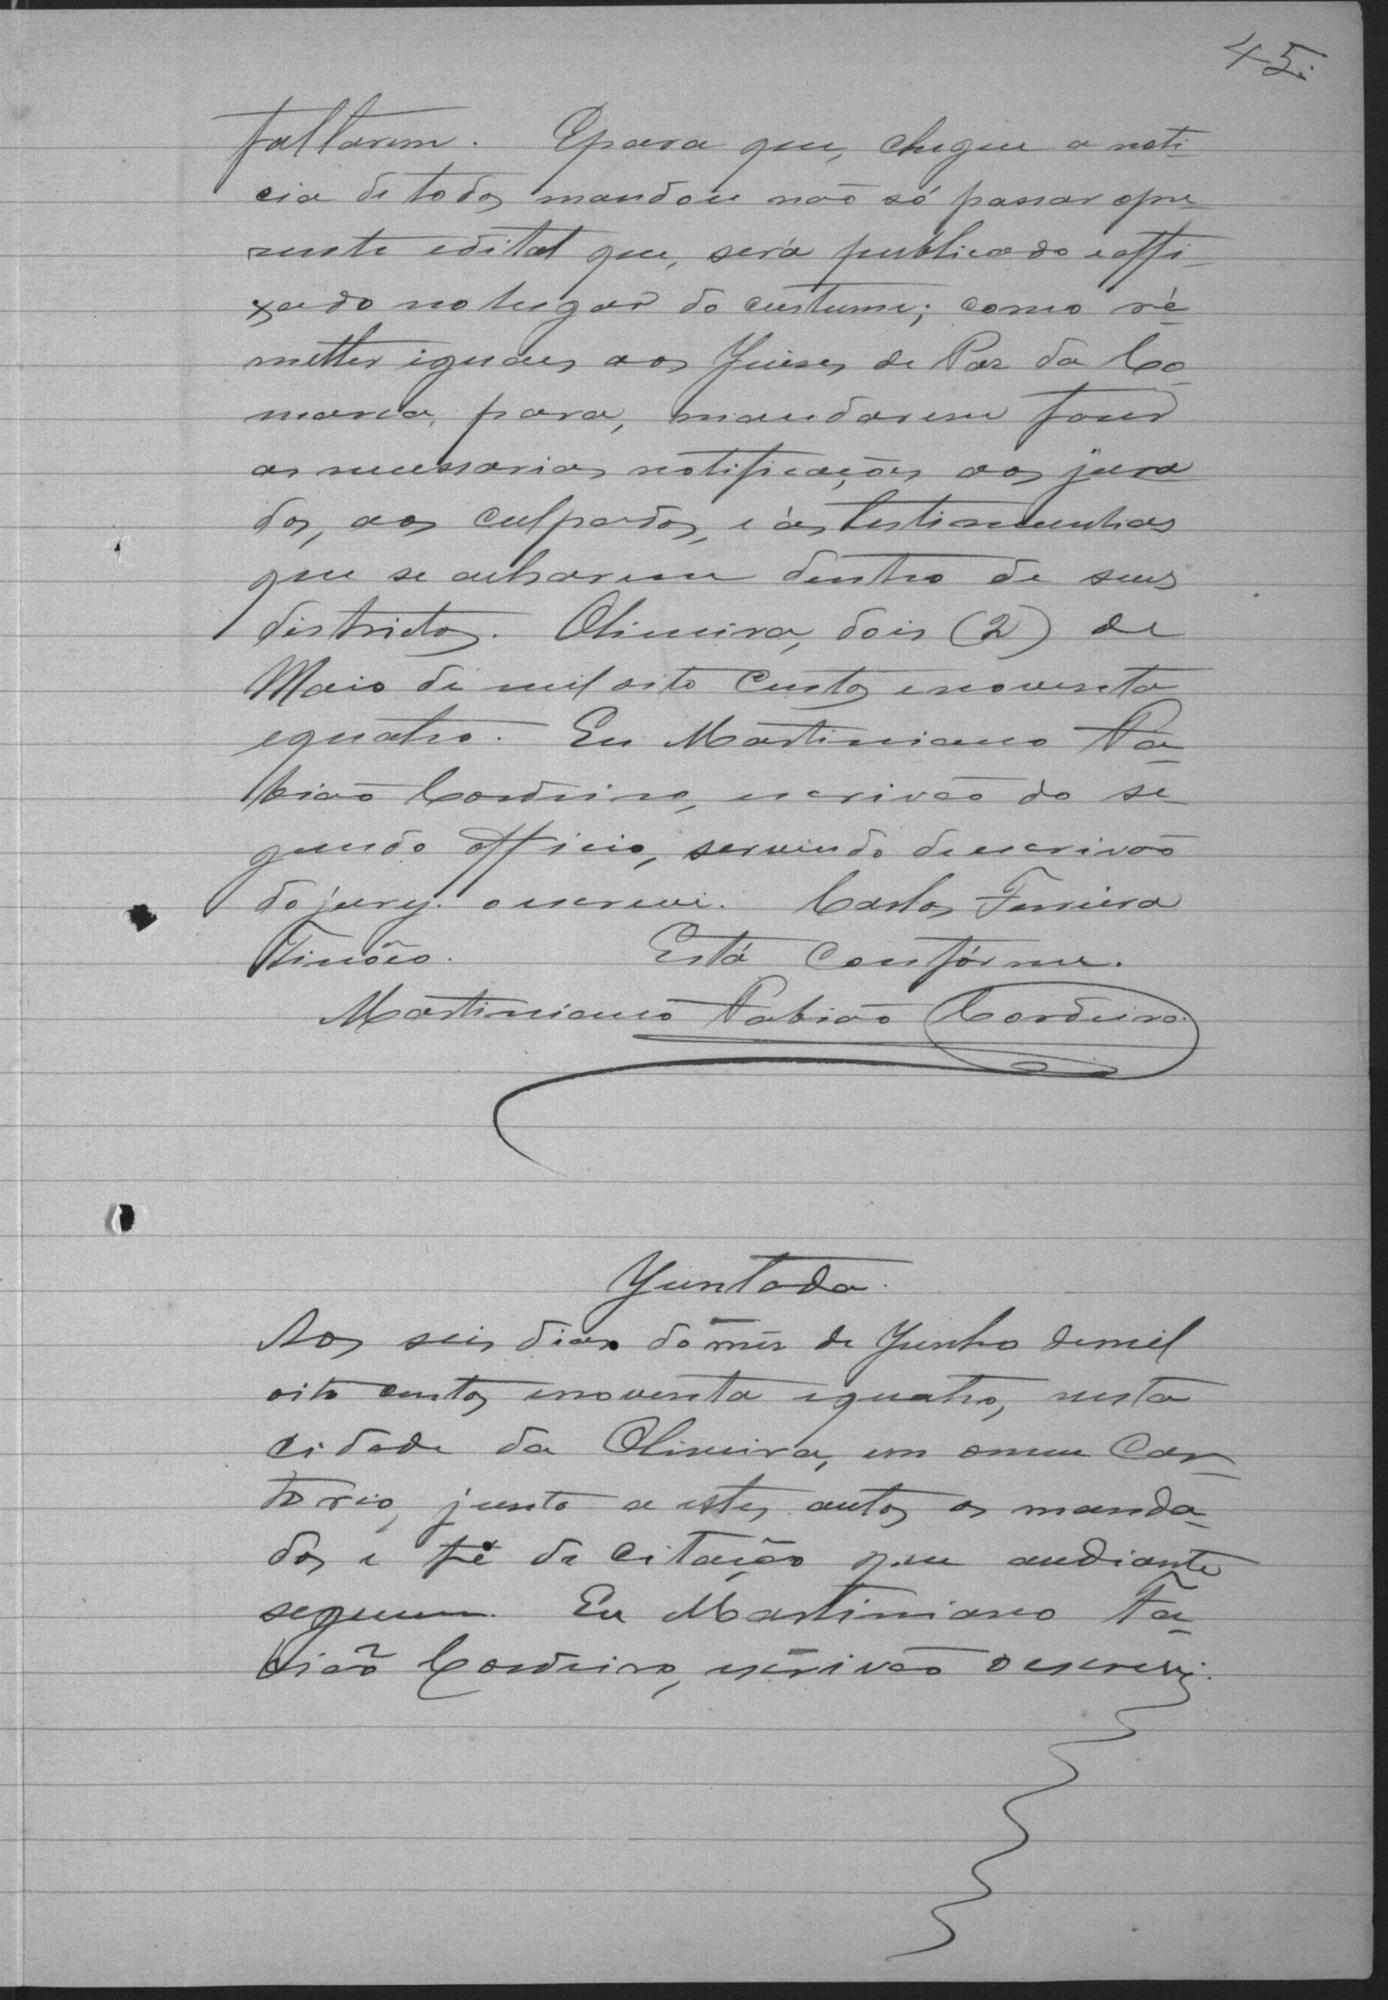 45.
faltarem. E para que, chegue a noti-
cia de todos mandou não só passar o pre-
sente edital que, será publicado e affi-
xado no lugar do custume; como re-
metter iguaes aos Juises de Paz da Co-
marca, para, mandarem faser
as necessarias notificações aos jura
dos, aos culpados, e ás testimunhas
que se acharem dentro de seus
districtos. Oliveira, dois (2) de
Maio de mil oito centos e noventa
e quatro. Eu Martiniano Fa-
bião Cordeiro, escrivão do se
gundo officio, servindo de escrivão
do jury. o escrevi. Carlos Ferreira
Tinôco. Está Confórme.
Martiniano Fabião Cordeiro.
Juntada.
Aos seis dias do mês de Junho de mil
oito centos e noventa e quatro, nesta
cidade da Oliveira, em o meu Car-
torio, junto a estes autos os manda-
dos e fé de citação que audiante
seguem. Eu Martiniano Fa-
bião Cordeiro, escrivão o escrevi.